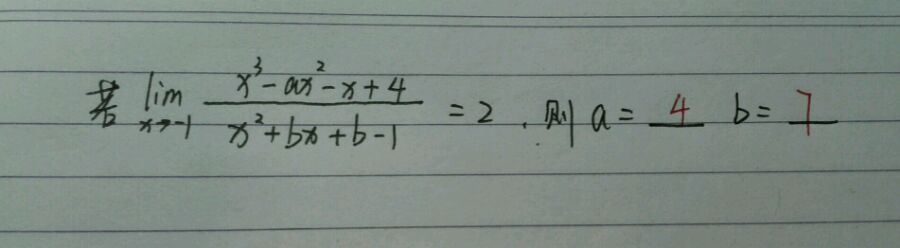 若 lim x→-1 (x³-ax²-x+4)/(x²+bx+b-1) =2. 则 a= 4 b= 7